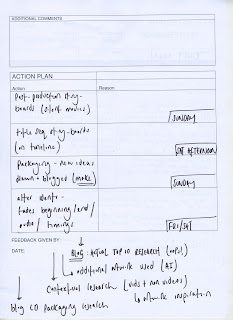 ADDITIONAL COMMENTS
ACTION PLAN
Action Reason
Post-production story-
boards (silent movies)
SUNDAY
title seq story-boards
(on timeline)
SAT AFTERNOON
Packaging - new ideas
drawn + blogged (make)
SUNDAY
alter identr -
fades beginning/end/
audio/timings
FRI/SAT
FEEDBACK GIVEN BY:
DATE:
BLOG: ACTUAL TOP 10 RESEARCH
additional artwork used (AI)
contextual research (vids + non videos)
artwork inspiration
blog CD packaging research